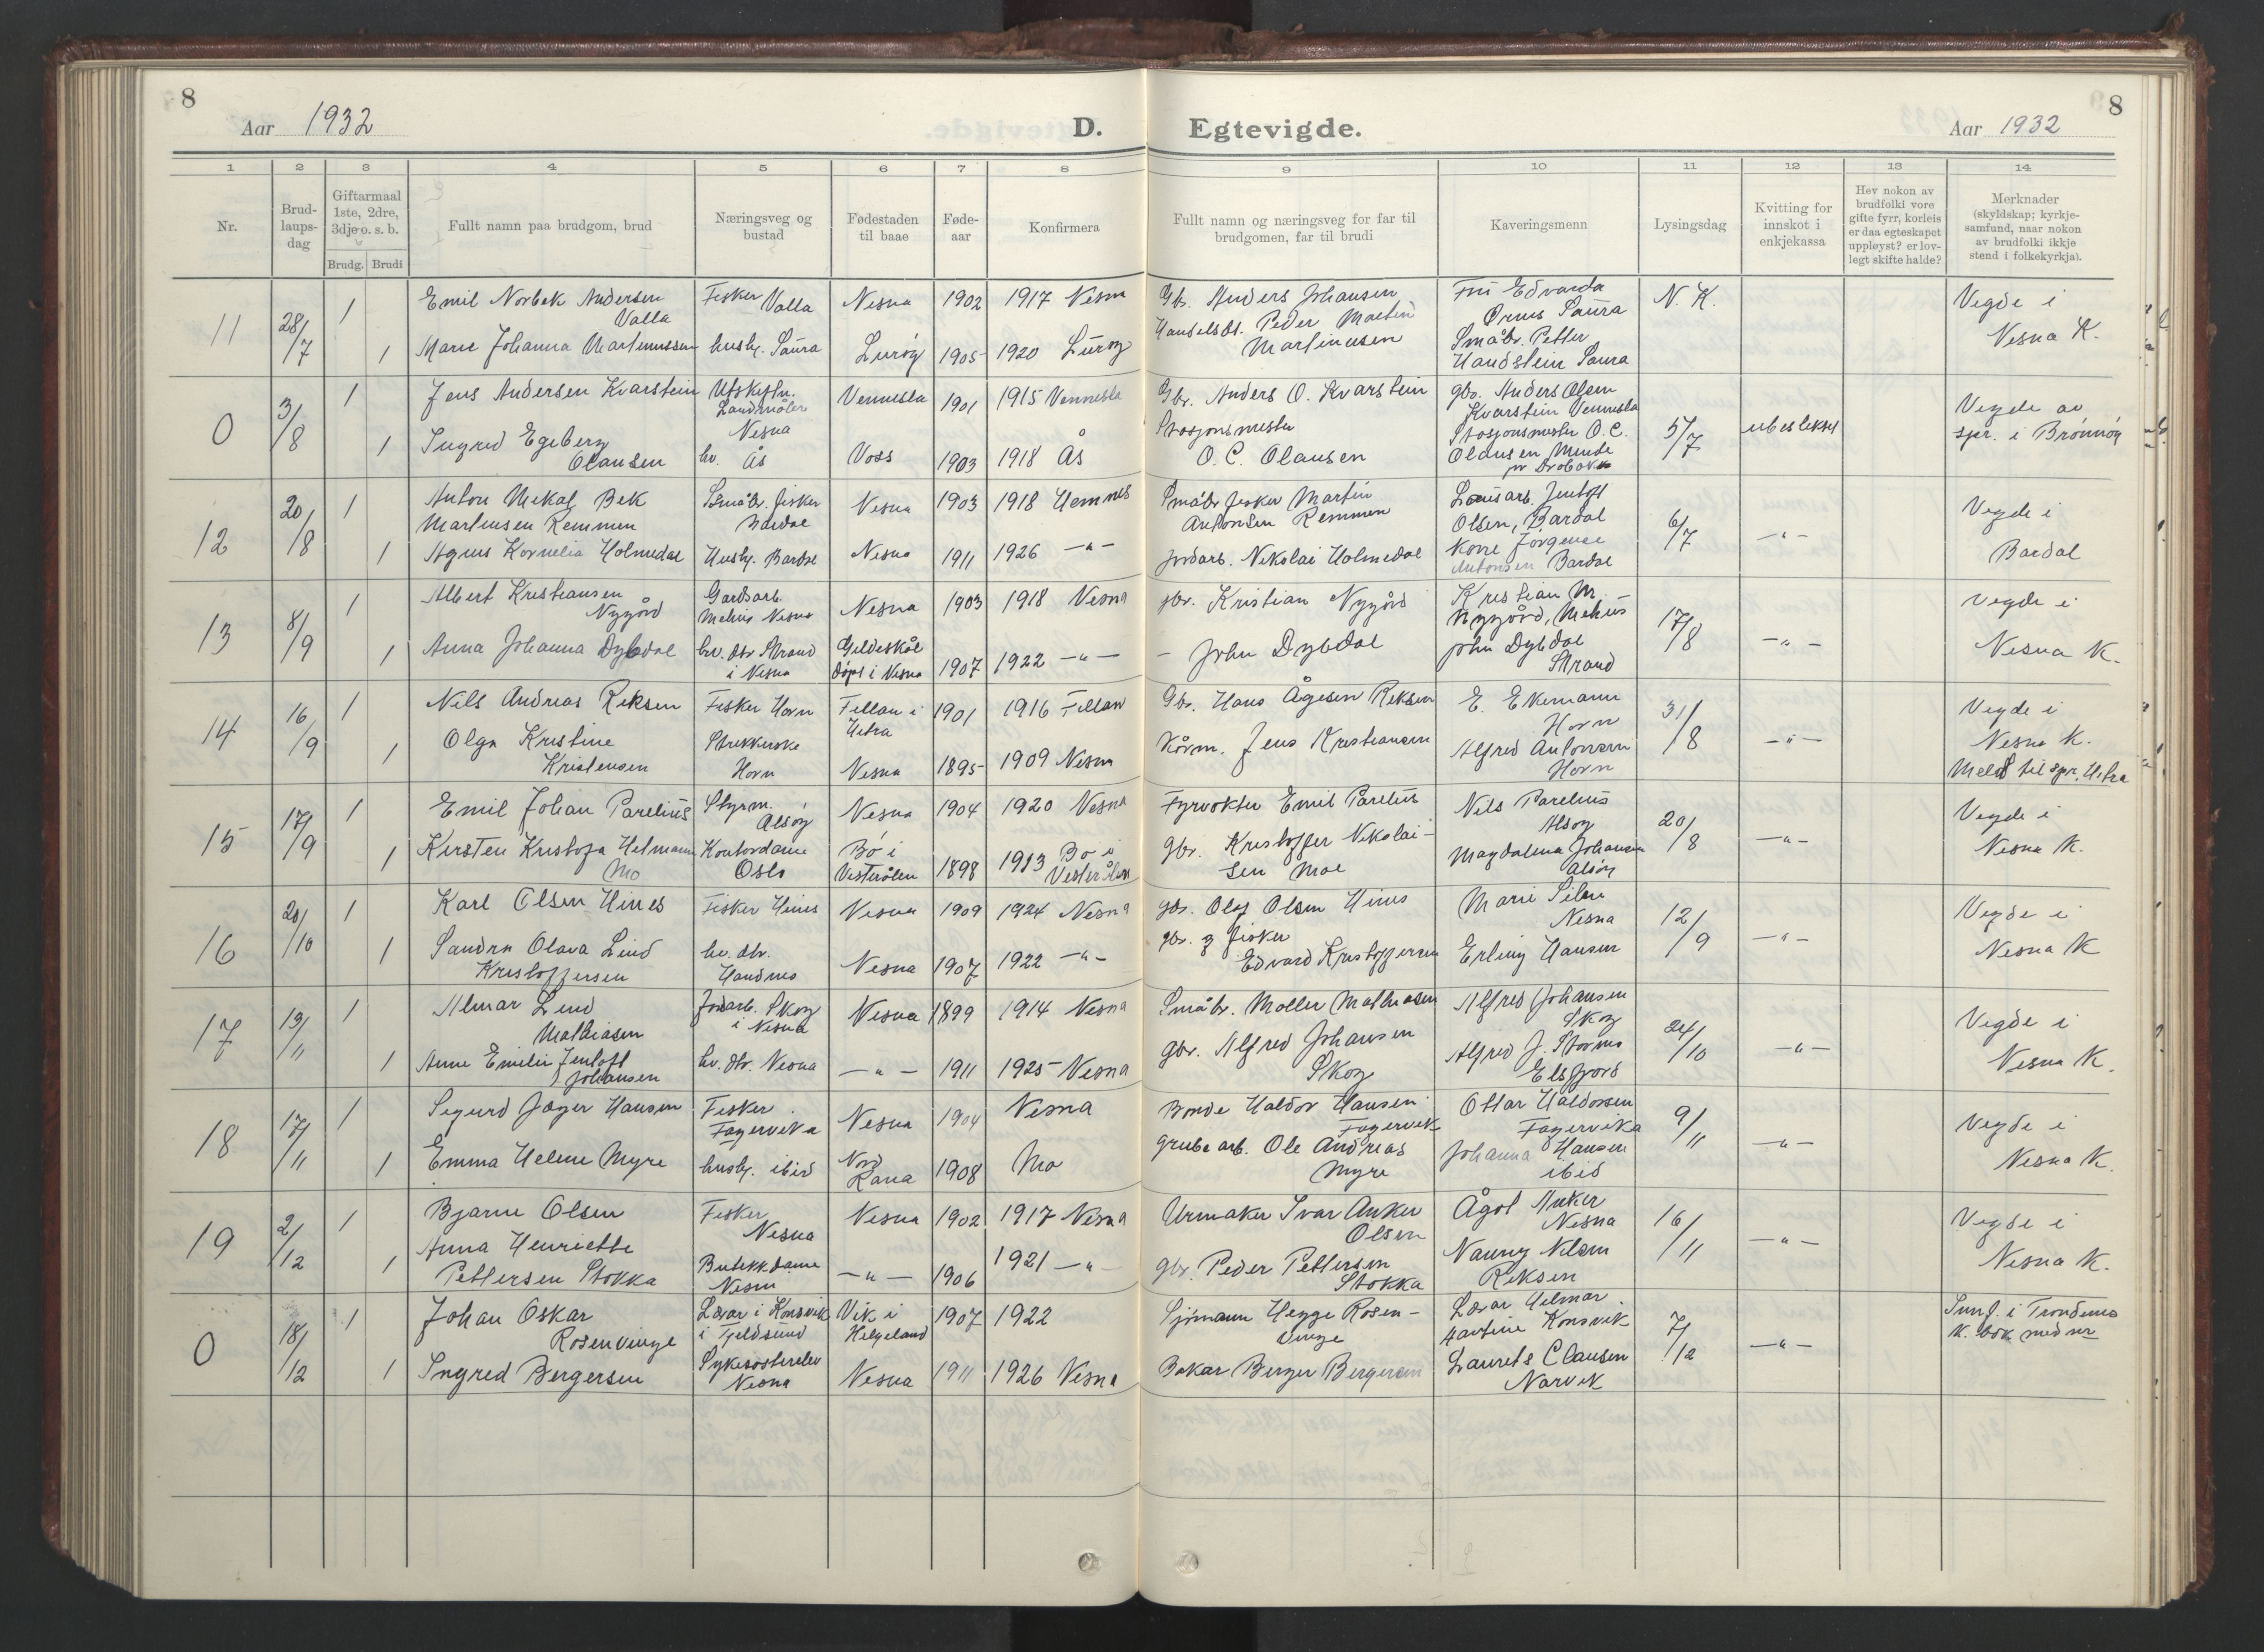 8
Aar 1932
D.
Egtevigde.
Aar 1932
8
1 2 3 4 5 6 7 8 9 10 11 12 13 14
Nr.
Brud-
laups-
dag
Giftarmaal
1ste, 2dre,
3dje o. s. b.
Brudg. Brudi
Fullt namn paa brudgom, brud
Næringsveg og
bustad
Fødestaden
til baae
Føde-
aar
Konfirmera
Fullt namn og næringsveg for far til
brudgomen, far til brudi
Kaveringsmenn
Lysingsdag
Kvitting for
innskot i
enkjekassa
Hev nokon av
brudfolki vore
gifte fyrr, korleis
er daa egteskapet
uppløyst? er lov-
legt skifte halde?
Merknader
(skyldskap; kyrkje-
samfund, naar nokon
av brudfolki ikkje
stend i folkekyrkja).
11
28/7
1
Emil Norbek Andersen
Valla
Fisker Valla
Nesna
1902
1917 Nesna
Gbr. Anders Johansen
Fru Edvarda
Ørnes Saura
N. K.
Vegde i
Nesna K.
1
Marie Johanna Martinussen
husby. Saura
Lurøy
1905
1920 Lurøy
Handelsbt. Peder Martin
Martinusen
Småbr. Petter
Handstein Saura
0
3/8
1
Jens Andersen Kvarstein
Utskiftn.
Landmåler
Nesna
Vennesla
1901
1915 Vennesla
Gbr. Anders O. Kvarstein
gbr. Anders Olsen
Kvarstein Vennesla
5/7
Vegde av
spr. i Brønnøy
1
Ingrid Egeberg
Olausen
hv. Ås
Voss
1903
1918 Ås
Stasjonsmester
O. C. Olausen
Stasjonsmester O. C.
Olausen
pr Drøbak
12
20/8
1
Anton Mekal Bek
Martinsen Remmen
Småbr. fisker
Bardal
Nesna
1903
1918 Hemnes
Småbr fisker Martin
Antonsen Remmen
Jentoft
Olsen, Bardal
6/7
-"-
Vegde i
Bardal
1
Agnes Kornelia Holmedal
Husby. Bardal
Nesna
1911
1926 -"-
jordarb. Nikolai Holmedal
Kone Jørgense
Antonsen Bardal
13
8/9
1
Albert Kristiansen
Nygård
Gardsarb.
Mehus Nesna
Nesna
1903
1918 Nesna
gbr. Kristian Nygård
Kristian M.
Nygård, Mehus
17/8
-"-
Vegde i
Nesna K.
1
Anna Johanna Dybdal
hv. dtr Strand
i Nesna
Gildeskål
døpt i Nesna
1907
1922 -"-
- John Dybdal
John Dybdal
Strand
14
16/9
1
Nils Andreas Reksen
Fisker Horn
Fillan i
Hitra
1901
1916 Fillan
Gbr. Hans Ågesen Reksen
E. Ekemann
Horn
31/8
-"-
Vegde i
Nesna K.
Meldt til spr. Hitra
1
Olga Kristine
Kristensen
Strikkerske
Horn
Nesna
1895
1909 Nesna
Kårm. Jens Kristiansen
Alfred Antonsen
Horn
15
17/9
1
Emil Johan Parelius
Styrm.
Alsøy
Nesna
1904
1920 Nesna
Fyrvokter Emil Parelius
Nils Parelius
Alsøy
20/8
-"-
Vegde i
Nesna K.
1
Kirsten Kristofa Helmann
Mo
Kontordame
Oslo
Bø i
Vesterålen
1898
1913 Bø i
Vesterålen
gbr. Kristoffer Nikolai-
sen Moe
Magdalena Johansen
Alsøy
16
20/10
1
Karl Olsen Hines
Fisker Hines
Nesna
1909
1924 Nesna
gbr. Olaf Olsen Hines
Marie Silen
Nesna
12/9
-"-
Vegde i
Nesna K
1
Sandra Olava Lind
Kristoffersen
hv. dtr.
Handnes
Nesna
1907
1922 -"-
gbr. og fisker
Edvard Kristoffersen
Erling Hansen
17
13/11
1
Almar Lind
Mathiasen
Jordarb. Skog
i Nesna
Nesna
1899
1914 Nesna
Småbr. Møller Mathiasen
Alfred Johansen
Skog
24/10
-"-
Vegde i
Nesna K.
1
Anne Emilie Jentoft
Johansen
hv. dtr. Nesna
-"-
1911
1925 Nesna
Gbr. Alfred Johansen
Skog
Alfred J. Stornes
Elsfjord
18
17/11
1
Sigurd Jæger Hansen
Fisker
Fagervika
Nesna
1904
Nesna
Bonde Haldor Hansen
Fagervik
Ottar Haldorsen
Fagervika
9/11
-"-
Vegde i
Nesna K.
1
Emma Helene Myre
husby. ibid
Nord
Rana
1908
Mo
grube arb. Ole Andreas
Myre
Johanna Hansen
ibid
19
2/12
1
Bjarne Olsen
Fisker
Nesna
Nesna
1902
1917 Nesna
Urmaker Ivar Anker
Olsen
Ågot Anker
Nesna
16/11
-"-
Vegde i
Nesna K.
1
Anna Henriette
Pettersen Stokka
Butikkdame
Nesna
-"-
1906
1921 -"-
gbr. Peder Pettersen
Stokka
Nanny Nilsen
Reksen
0
18/12
1
Johan Oskar
Rosenvinge
Lærar i Konsvik
i Tjeldsund
Vik i
Helgeland
1907
1922
Sjömann Hegge Rosen-
vinge
Lærar Hilmar
Konsvik
7/12
-"-
i Trondenes
K. bok med nr
1
Ingrid Bergersen
Sykesösterelev
Nesna
Nesna
1911
1926 Nesna
Bakar Berger Bergersen
Laurits Clausen
Narvik